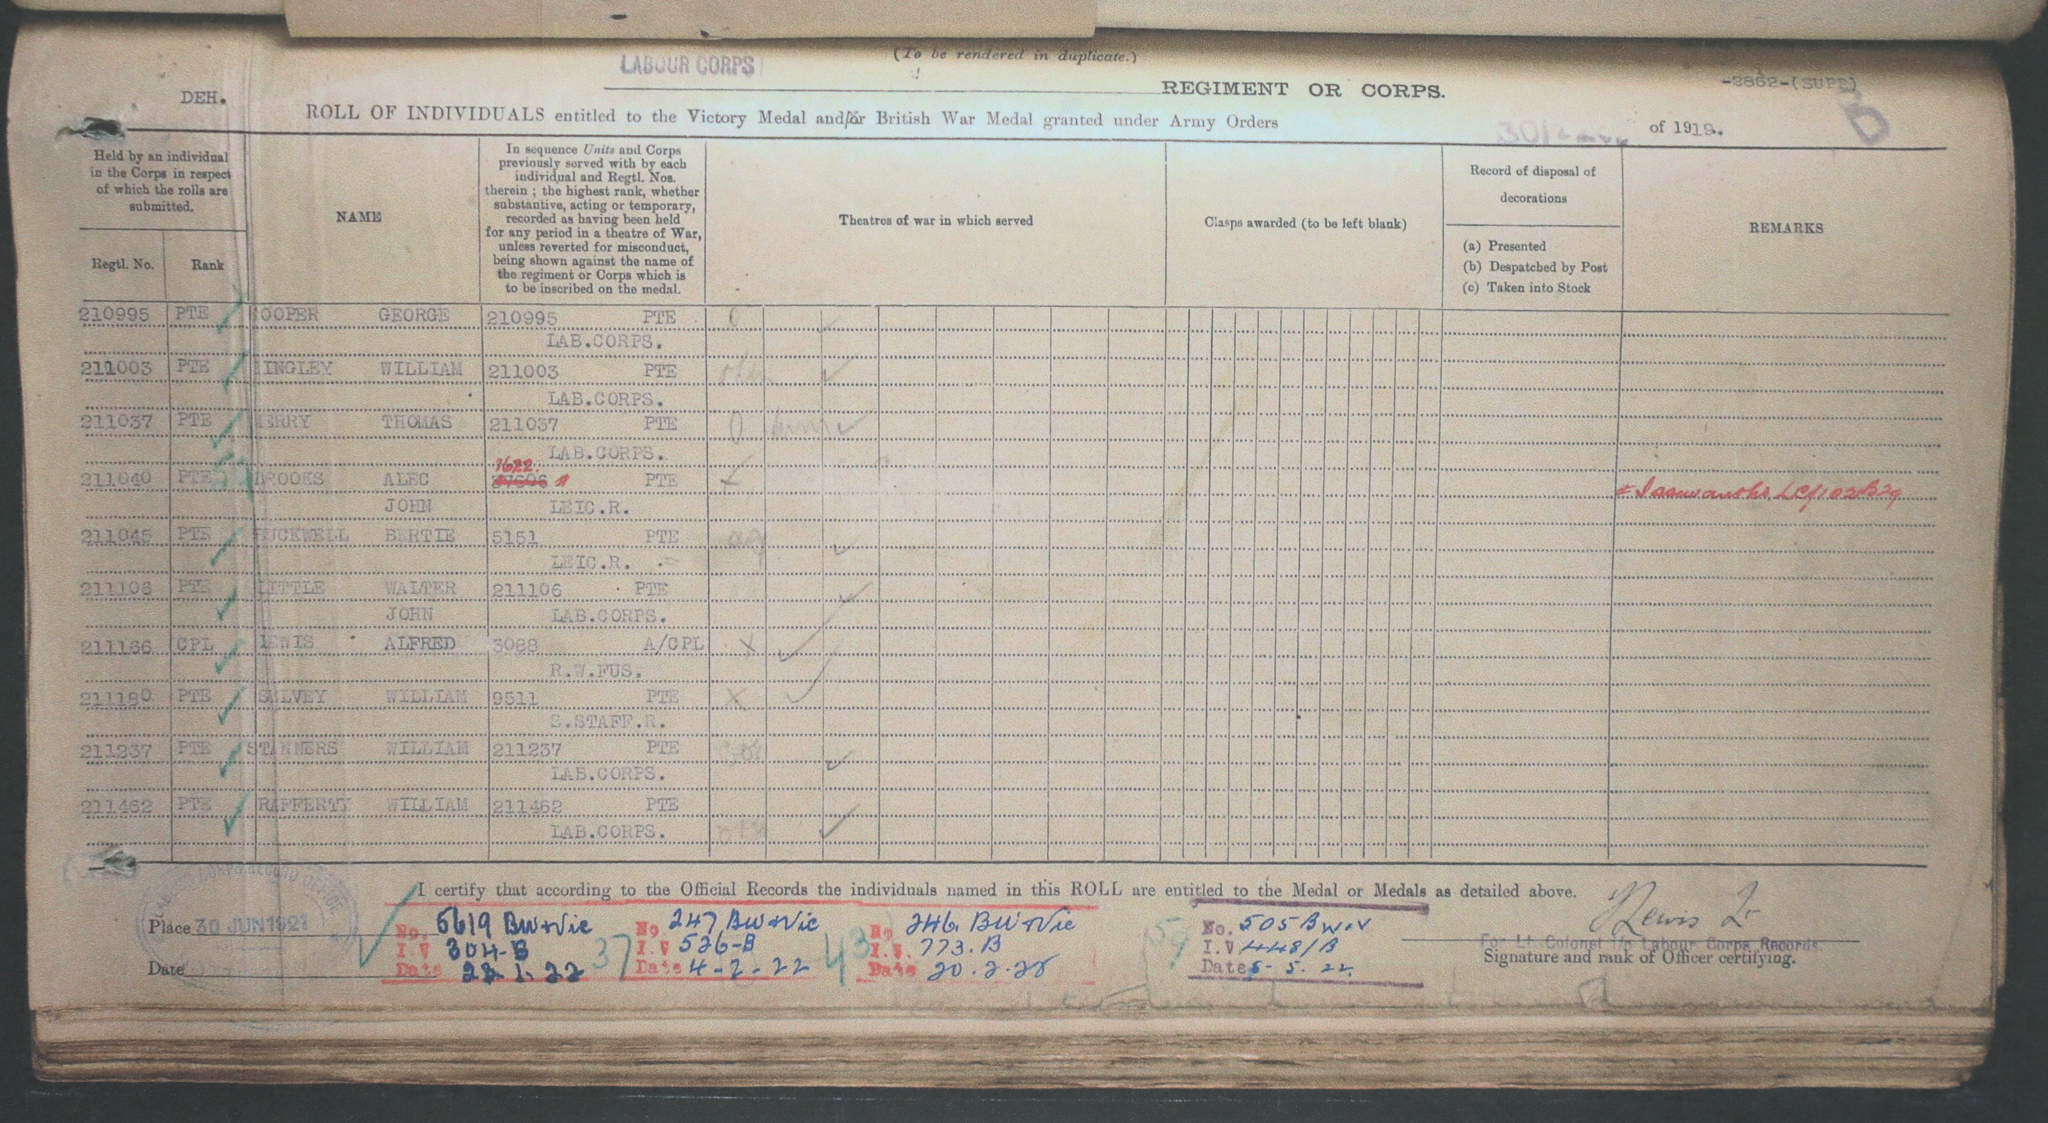 (To be rendered in duplicate.)
LABOUR CORPS
REGIMENT OR CORPS.
-2862-(SUPP)
DEH.
ROLL OF INDIVIDUALS entitled to the Victory Medal and/or British War Medal granted under Army Orders of 1919.
D
Held by an individual
in the Corps in respect
of which the rolls are
submitted.
Regtl. No. Rank
NAME
In sequence Units and Corps
previously served with by each
individual and Regtl. Nos.
therein ; the highest rank, whether
substantive, acting or temporary,
recorded as having been held
for any period in a theatre of War,
unless reverted for misconduct,
being shown against the name of
the regiment or Corps which is
to be inscribed on the medal.
Theatres of war in which served
Clasps awarded (to be left blank)
Record of disposal of
decorations
(a) Presented
(b) Despatched by Post
(c) Taken into Stock
REMARKS
210995 PTE COOPER GEORGE 210995 PTE
LAB.CORPS.
211003 PTE WILLIAM 211003 PTE
LAB.CORPS.
211037 PTE THOMAS 211037 PTE
LAB.CORPS.
1622.
211040 PTE BROOKS ALEC 27606 PTE
JOHN LEIC.R.
211045 PTE BERTIE 5151 PTE
LEIC.R.
211106 PTE LITTLE WALTER 211106 PTE
JOHN LAB.CORPS.
211136 CPL LEWIS ALFRED 3088 A/CPL X
R.W.FUS.
211180 PTE SELVEY WILLIAM 9511 PTE X
S.STAFF.R.
211237 PTE STANNERS WILLIAM 211237 PTE
LAB.CORPS.
211462 PTE RAFFERTY WILLIAM 211462 PTE
LAB.CORPS.
I certify that according to the Official Records the individuals named in this ROLL are entitled to the Medal or Medals as detailed above.
LABOUR CORPS RECORD OFFICE
Place 30 JUN 1921
Date
No. 5619 BW&Vic
I.V 304-B
Date 23.1.22
37
No 247 BW&Vic
I.V 526-B
Date 4-2-22
43
No 246. BW&Vic
I.V. 773.B
Date 20.2.22
59
No. 505 BW&V
I.V 448/B
Date 5.5.22.
Lewis Lt
For Lt. Colonel i/c Labour Corps Records.
Signature and rank of Officer certifying.